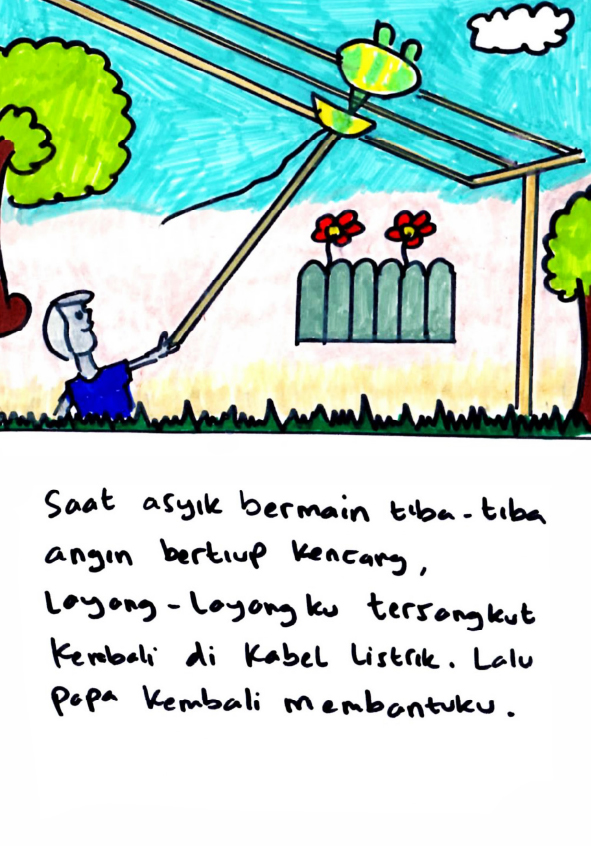 Saat asyik bermain tiba-tiba
angin bertiup kencang,
Layang-Layangku tersangkut
kembali di kabel Listrik. Lalu
papa kembali membantuku.